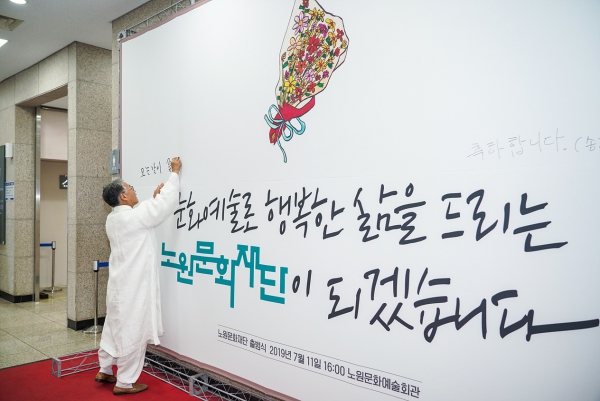 축하합니다.
모두같이
문화예술로 행복한 삶을 드리는
노원문화재단이 되겠습니다
노원문화재단 출범식 2019년 7월 11일 16:00 노원문화예술회관